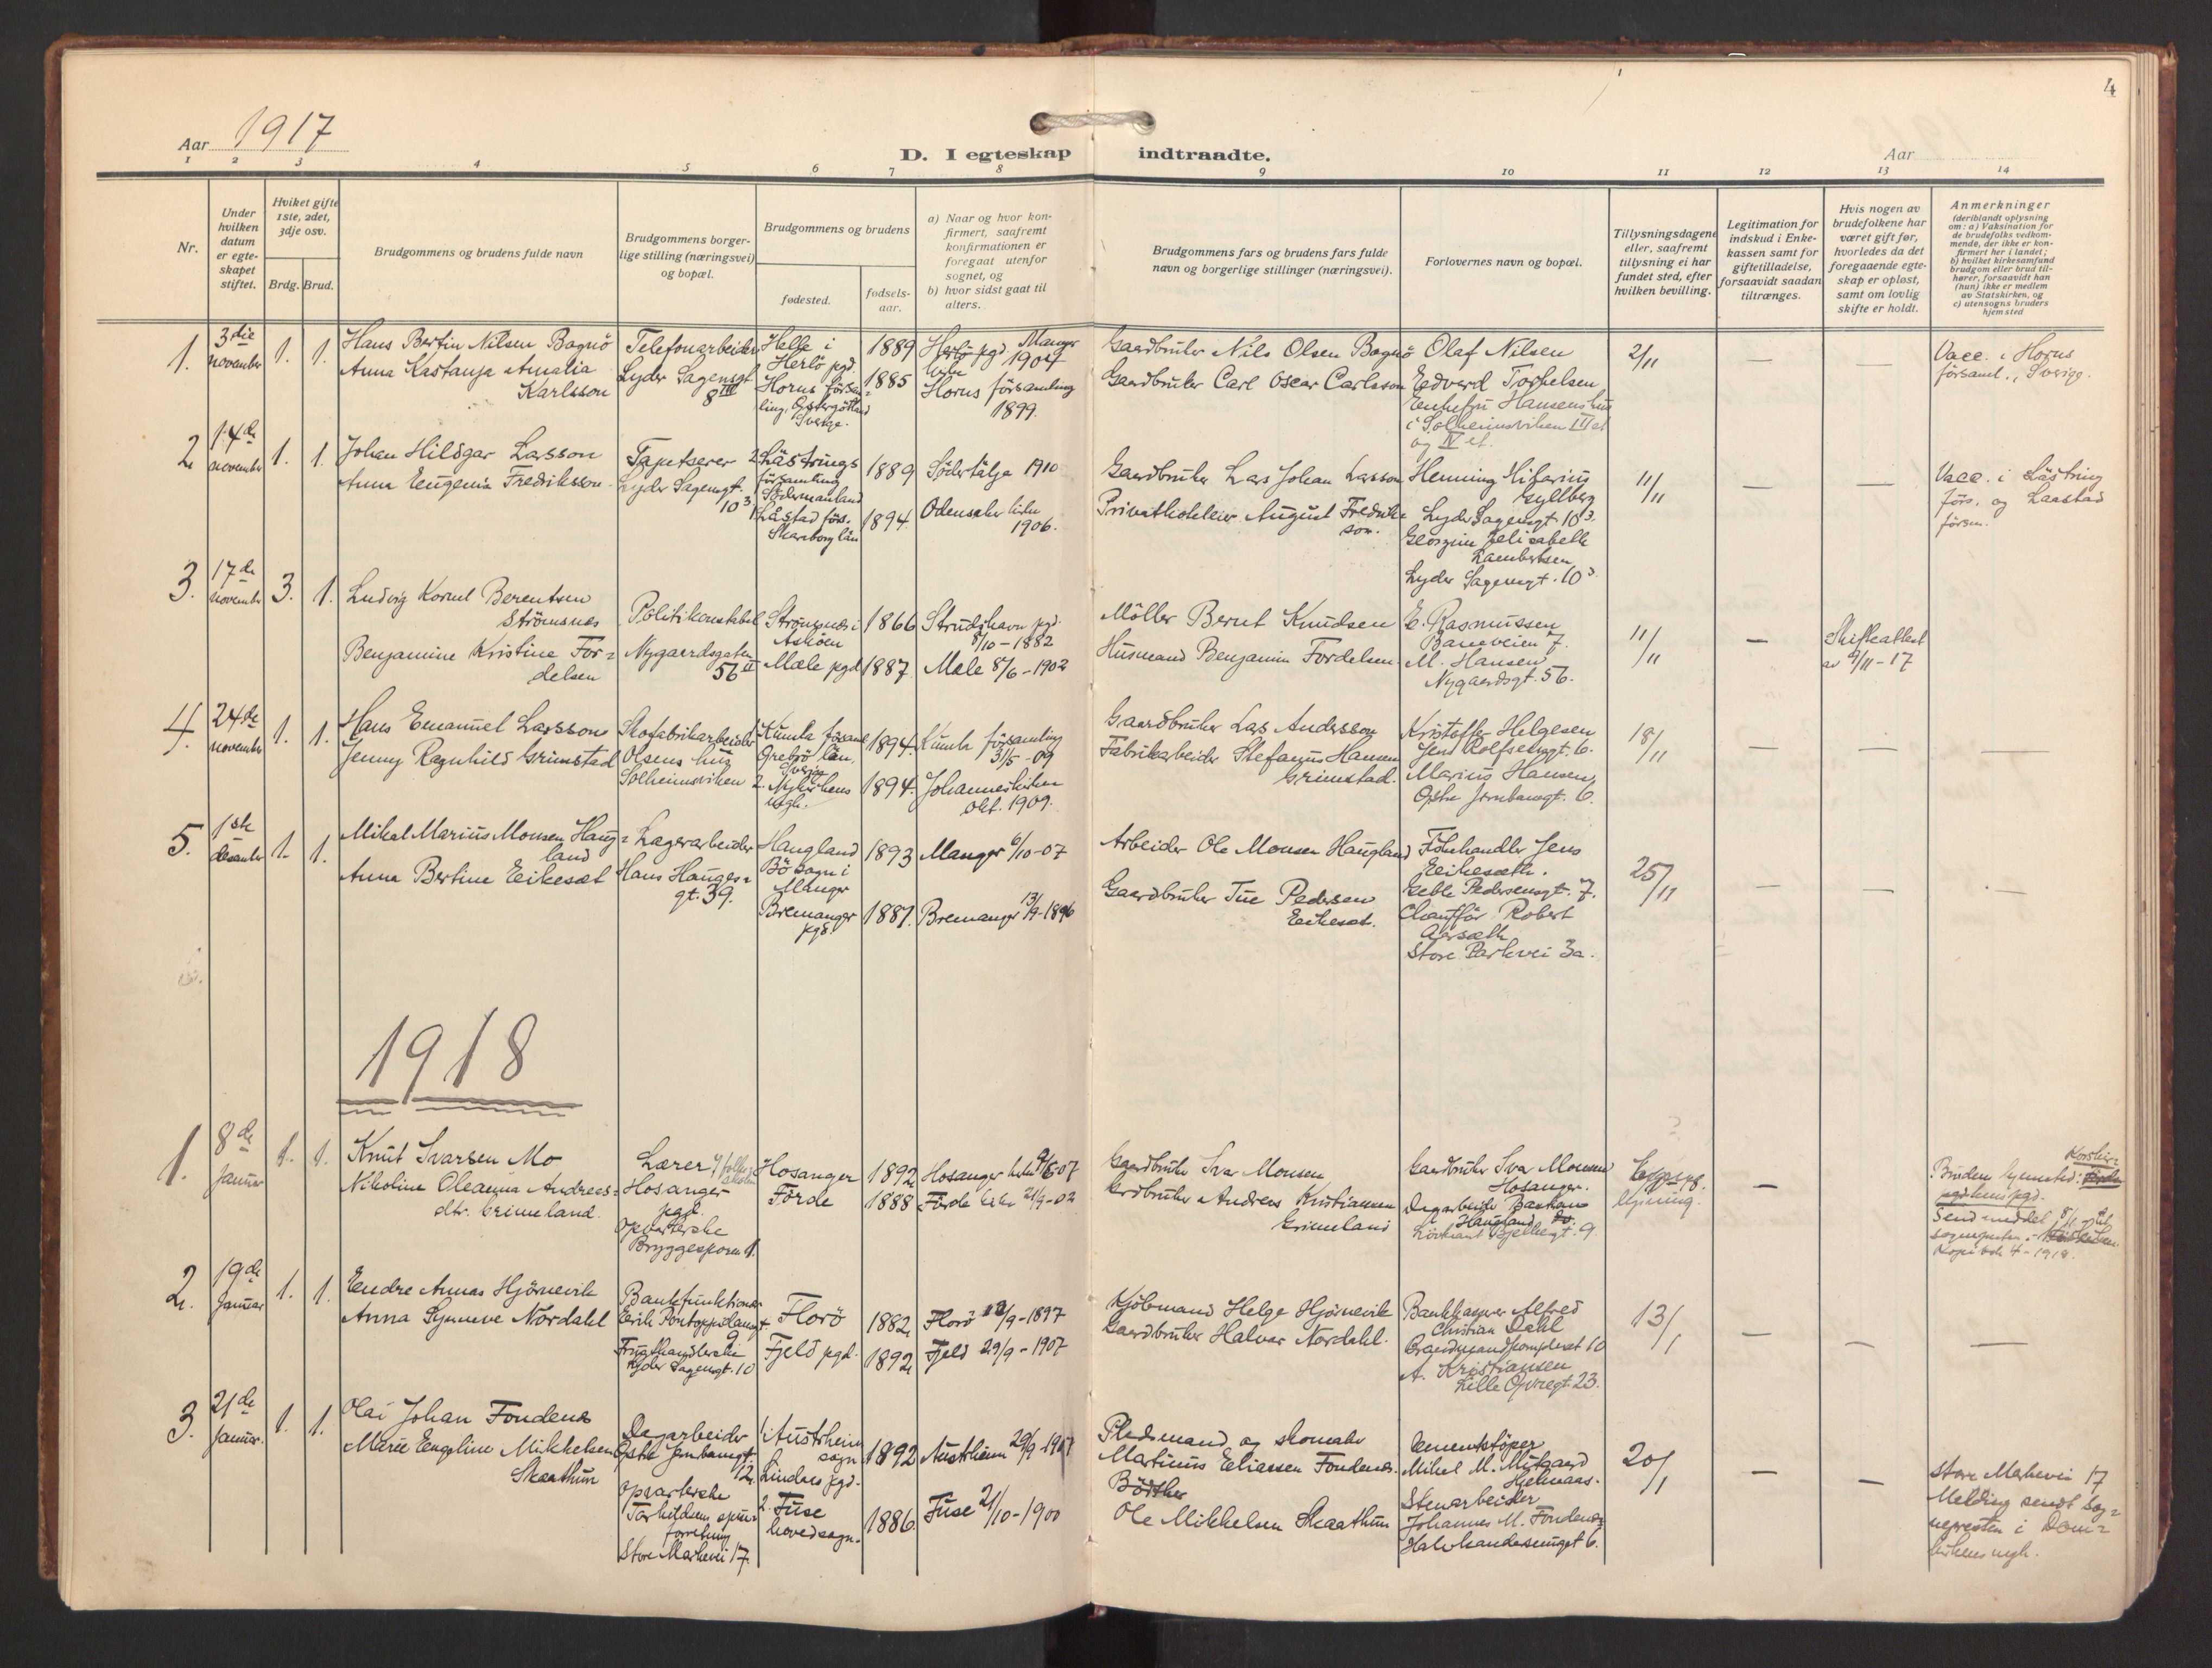 4
Aar 1917
D. I egteskap indtraadte.
Aar
1 2 3 4 5 6 7 8 9 10 11 12 13 14
Nr.
Under
hvilken
datum
er egte-
skapet
stiftet.
Hviket gifte
1ste, 2det,
3dje osv.
Brdg. Brud.
Brudgommens og brudens fulde navn
Brudgommens borger-
lige stilling (næringsvei)
og bopæl.
Brudgommens og brudens
fødested.
fødsels-
aar.
a) Naar og hvor kon-
firmert, saafremt
konfirmationen er
foregaat utenfor
sognet, og
b) hvor sidst gaat til
alters.
Brudgommens fars og brudens fars fulde
navn og borgerlige stillinger (næringsvei).
Forlovernes navn og bopæl.
Tillysningsdagene
eller, saafremt
tillysning ei har
fundet sted, efter
hvilken bevilling.
Legitimation for
indskud i Enke-
kassen samt for
giftetilladelse,
forsaavidt saadan
tiltrænges.
Hvis nogen av
brudefolkene har
været gift før,
hvorledes da det
foregaaende egte-
skap er opløst,
samt om lovlig
skifte er holdt.
Anmerkninger
(deriblandt oplysning
om: a) Vaksination for
de brudefolks vedkom-
mende, der ikke er kon-
firmert her i landet;
b) hvilket kirkesamfund
brudgom eller brud til-
hører, forsaavidt han
(hun) ikke er medlem
av Statskirken, og
c) utensogns bruders
hjemsted
1.
3die
november
1. 1.
Hans Bertin Nilsen Bognö
Anna Kastanja Amalia
Karlsson
Telefonarbeider
Lyder Sagensgt
8 III
Helle i
Herlö pgd.
Horns försam=
ling, Östergötland
Sverige.
1889
1885
Herlö pgd Manger
kirke 1904
Horns församling
1899.
Gaardbruker Nils Olsen Bognö
Gaardbruker Carl Oscar Carlsson
Olaf Nilsen
Edvard Torkelsen
Enkefru Hansens hus
i Solheimsviken III et
og IV et.
2/11
—
—
Vacc. i Horns
församl., Sverige.
2.
14de
november
1. 1.
Johan Hildgar Larsson
Anna Eugenia Fredriksson
Tapetserer
Lyder Sagensgt.
10 3
Lästrings
församling
Södermanland
Låstad förs.
Skaraborg län
1889
1894.
Södertälje 1910
Odensaker kirke
1906.
Gaardbruker Lars Johan Larsson
Privathotteleier August Fredriks
son.
Henning Hilarius
Gyllberg
Lyder Sagensgt 10 3.
Georgine Elisabeth
Lambertsen
Lyder Sagensgt. 10 3
11/11
—
—
Vacc. i Lästring
förs. og Laastad
försm.
3.
17de
november
3. 1.
Ludvig Kornel Berentsen
Strömsnes
Benjamine Kristine For=
delsen
Politikonstabel
Nygaardsgaten
56 II
Strömsnes i
Asköen
Mæle pgd
1866
1887
Strudshavn pgd.
8/10 - 1882
Mæle 8/6 - 1902
Möller Bernt Knudsen
Husmand Benjamin Fordelsen
E. Rasmussen
Baneveien 7.
M. Hansen
Nygaardsgt. 56.
11/11
—
Skifteattest
av 9/11 - 17
4.
24de
november
1. 1.
Hans Emanuel Larsson
Jenny Ragnhild Grimstad
Skofabrikarbeider
Olsens hus
Solheimsviken
Kumla församl
Örebrö län,
Sverige
2. Nykirkens
sogn.
1894.
1894.
Kumla församling
31/5 - 09
Johanneskirken
okt. 1909.
Gaardbruker Lars Andersson
Fabrikarbeider Stefanus Hansen
Grimstad.
Kristoffer Helgesen
Jens Rolfsensgt. 6.
Marius Hansen,
Östre Jernbanegt. 6.
18/11
—
—
—
5.
1ste
desember
1. 1.
Mikal Marius Monsen Haug=
land
Anna Bertine Eikeset
Lagerarbeider
Hans Hauges=
gt. 39.
Haugland
Bö sogn i
Manger
Bremanger
pgd.
1893
1881.
Manger 6/10-07
Bremanger 13/9-1896
Arbeider Ole Monsen Haugland
Gaardbruker Tue Pedersen
Eikeset.
Fiskehandler Jens
Eikesæth.
Geble Pedersensgt. 7.
Chauffør Robert
Aarsæth
Store Parkvei 3a.
25/11
—
—
—
1918
1.
8de
Januar
1. 1.
Knut Ivarsen Mo
Nikoline Oleanna Andreas=
dtr. Grimeland.
Lærer v/folke=
skolen
Hosanger
pgd.
Opvarterske
Bryggesporen 1.
Hosanger
Förde
1892
1888
Hosanger kirke 9/6-07
Förde kirke 21/9-02
Gaardbruker Ivar Monsen
Grdbruker Andreas Kristiansen
Grimeland
Gaardbruker Ivar Monsen
Hosanger.
Dagarbeider
Haugland
Lövstakt Fjellvegt. 9.
lysning.
—
Brudens hjemsted: Korskir=
kens pgd.
Send meddel 8/1 til
sogneprten.
Kopi bok 4 - 1918.
2.
19de
Januar
1. 1.
Endre Annas Hjörnevik
Anna Synneve Nordahl
Bankfunktionær
Erik Pontoppidansgt.
9
Frugthandlerske
Lyder Sagensgt. 10
Florö
Fjeld pgd.
1882
1892
Florö 12/9-1897
Fjeld 29/9-1907
Kjöbmand Helge Hjörnevik
Gaardbruker Halvor Nordahl.
Bankkasserer Alfred
Christian Dahl
A. Kristiansen
Lille Övregt. 23.
13/1
—
—
—
3.
21de
Januar.
1. 1.
Olai Johan Fondenes
Marie Engeline Mikkelsen
Skaathun
Dagarbeider
Östre Jernbanegt.
12.
Opvarterske
Torkildsens spise=
forretning
Store Markevei 17.
1. Austrheim
sogn
Lindaas pgd.
2. Fuse
hovedsogn.
1892
1886.
Austrheim 29/9-1907
Fuse 21/10-1900
Pladsmand og skomaker
Martinus Eliassen Fondenes.
Bödker
Ole Mikkelsen Skaathun
Cementstöper
Mikel M. Mitgaard
Hjelmaas.
Stenarbeider
Johannes M. Fondenes
Halvkandesmuget 6.
20/1
—
—
Store Markevei 17
Melding sendt Sog=
nepresten i Dom=
kirkens mgh.